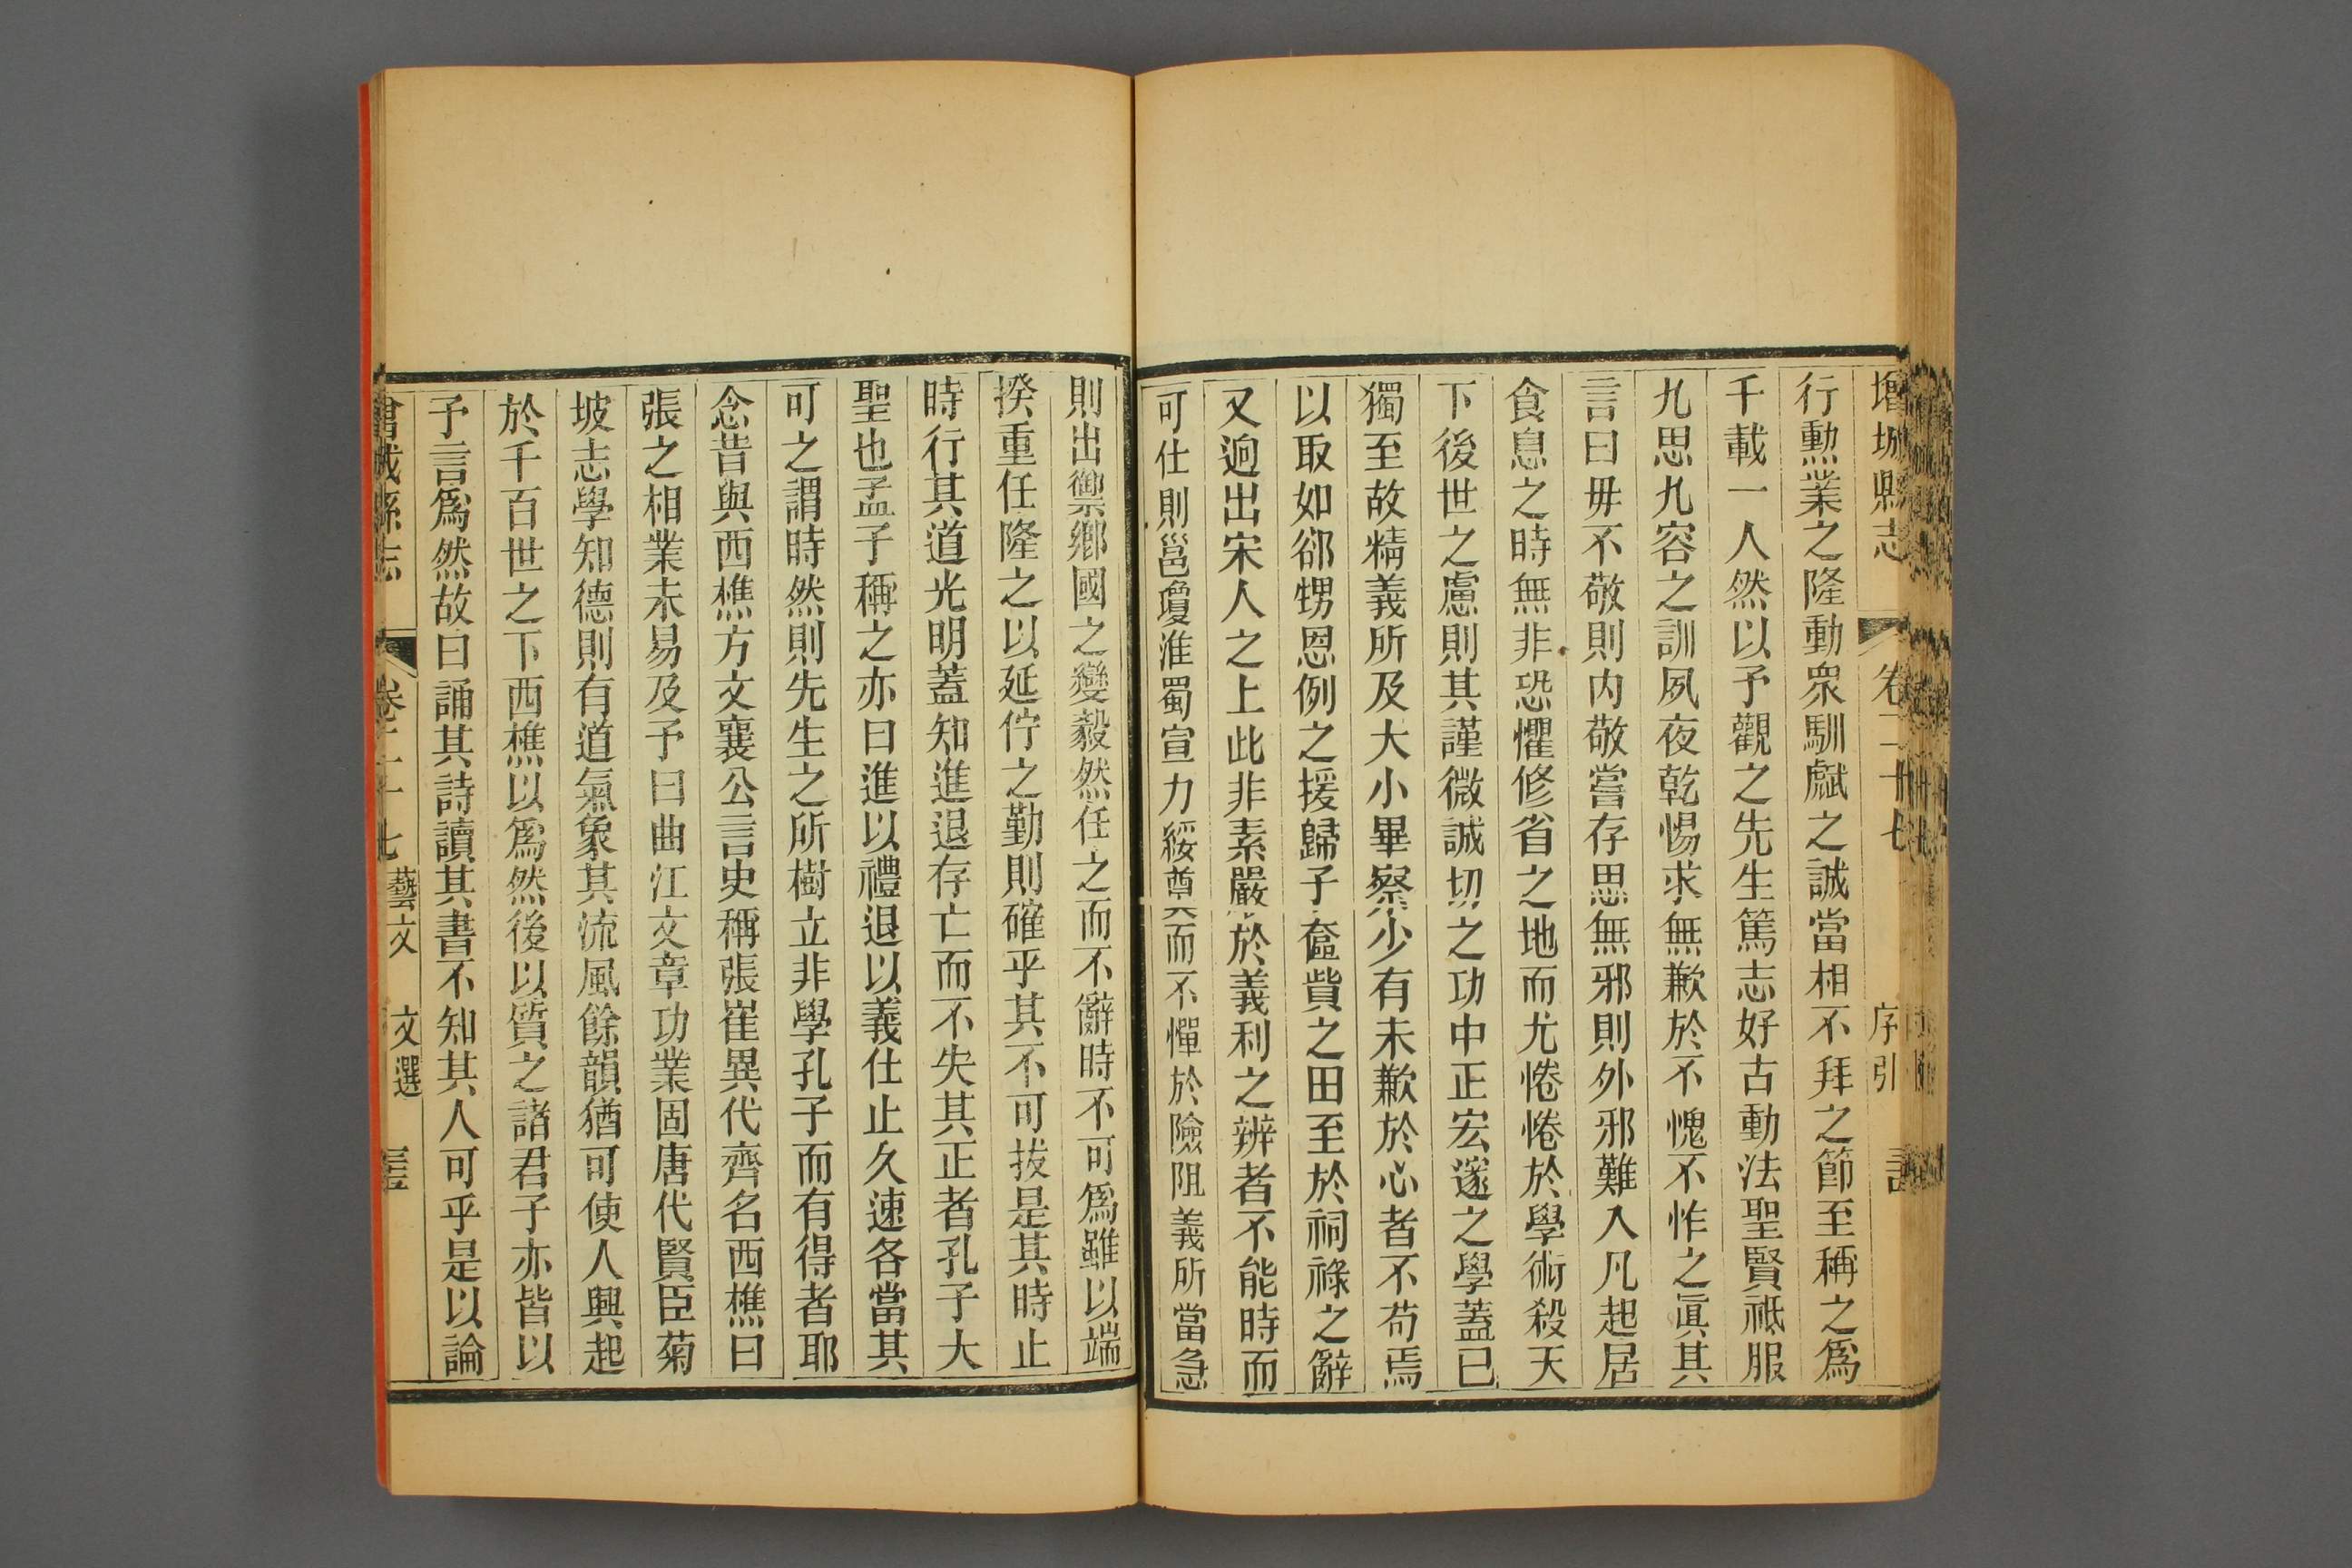 增城縣志 卷二十七 序引
行勲業之隆動衆馴龥之誠當相不拜之節至稱之爲
千載一人然以予觀之先生篤志好古動法聖賢祗服
九思九容之訓夙夜乾惕求無歉於不愧不怍之眞其
言曰毋不敬則内敬嘗存思無邪則外邪難入凡起居
食息之時無非恐懼修省之地而尤惓惓於學術殺天
下後世之慮則其謹微誠切之功中正宏邃之學蓋已
獨至故精義所及大小畢察少有未歉於心者不苟焉
以取如卻甥恩例之援歸子奩貲之田至於祠祿之辭
又逈出宋人之上此非素嚴於義利之辨者不能時而
可仕則邕瓊淮蜀宣力綏奠而不憚於險阻義所當急
則出禦鄉國之變毅然任之而不辭時不可爲雖以端
揆重任隆之以延佇之勤則確乎其不可拔是其時止
時行其道光明蓋知進退存亡而不失其正者孔子大
聖也孟子稱之亦曰進以禮退以義仕止久速各當其
可之謂時然則先生之所樹立非學孔子而有得者耶
念昔與西樵方文襄公言史稱張崔異代齊名西樵曰
張之相業未易及予曰曲江文章功業固唐代賢臣菊
坡志學知德則有道氣象其流風餘韻猶可使人興起
於千百世之下西樵以爲然後以質之諸君子亦皆以
予言爲然故曰誦其詩讀其書不知其人可乎是以論
縣志 卷二十七 藝文 文選